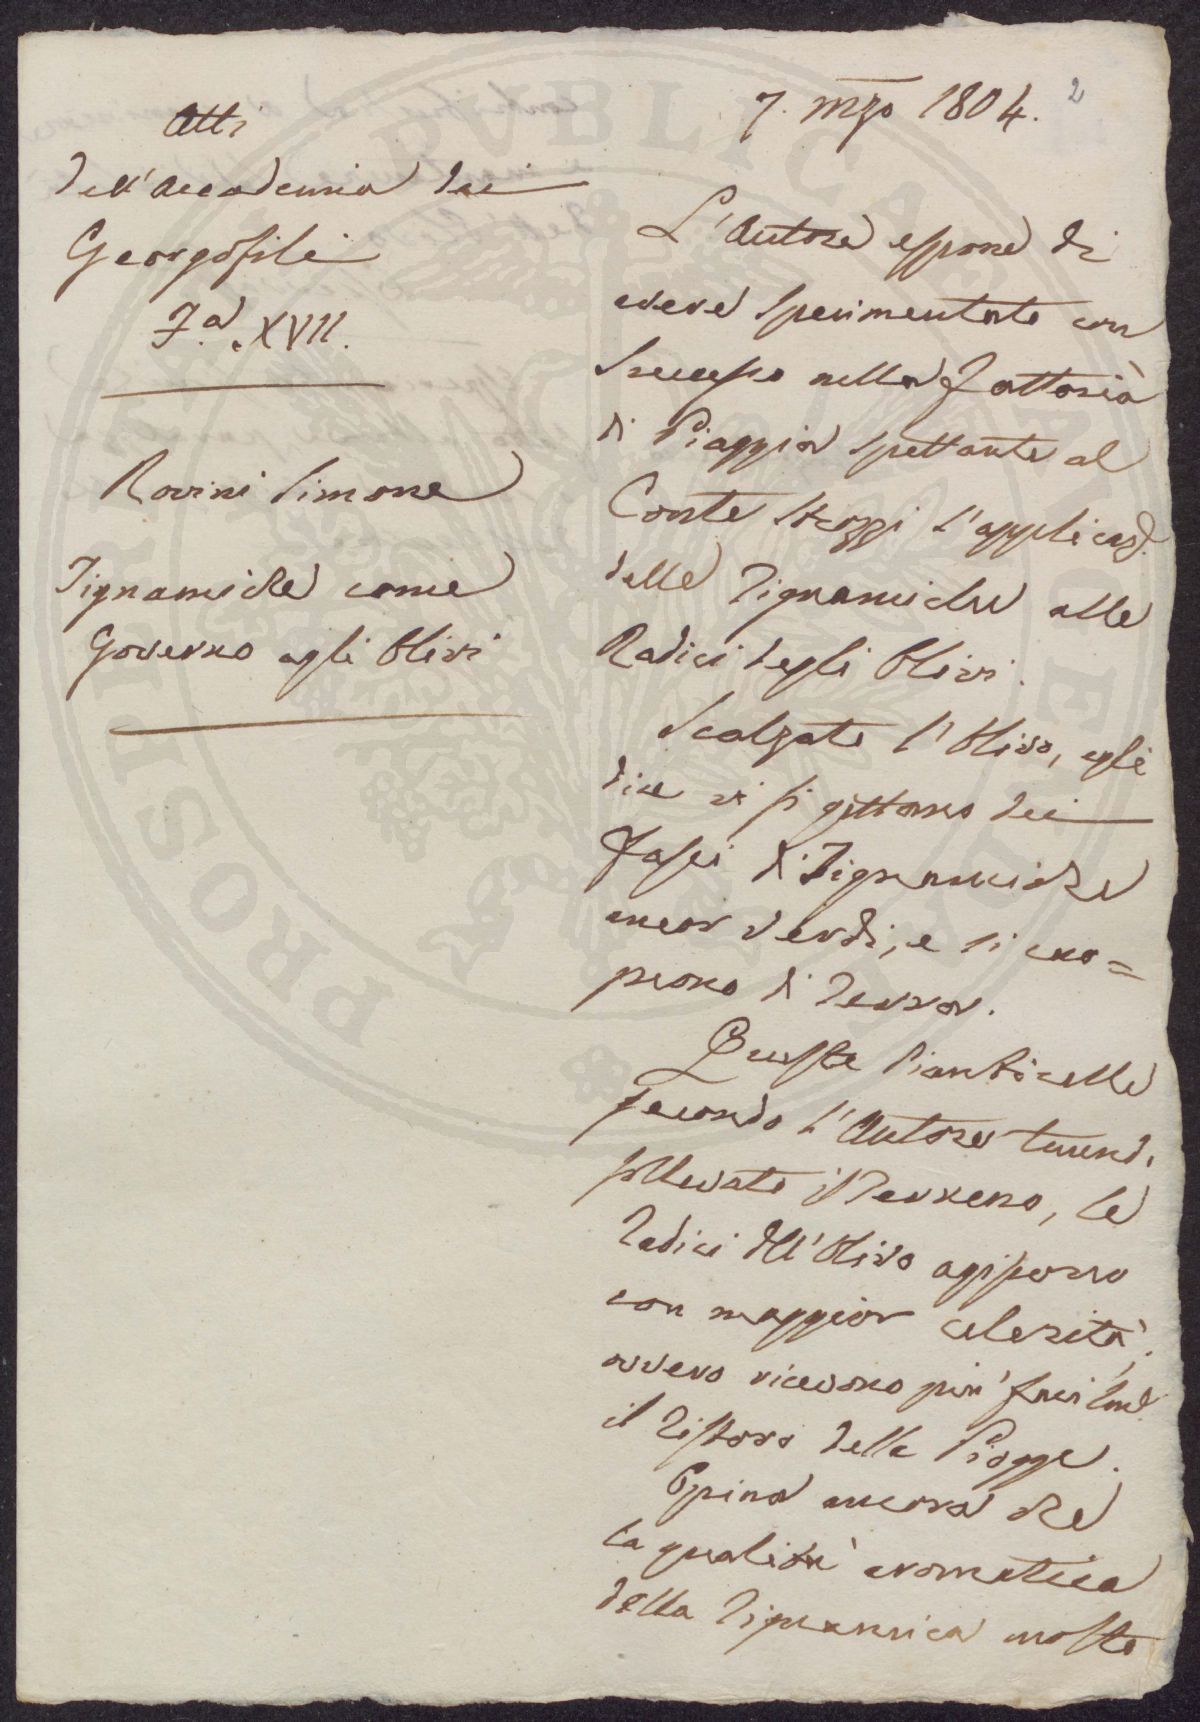 7. Mzo 1804.
2
Atti
dell'Accademia dei
Georgofili
XVII.
Rovini Simone
Tignamiche come
Governo agli Olivi
L'Autore espone di
avere sperimentato con
Successo nella Fattoria
di Piaggia spettante al
Conte Strozzi l'applicaz.
delle Tignamiche alle
Radici degli Olivi.
Scalzato l'Olivo, egli
dice vi si gettano dei
Fasci di Tignamiche
ancor verdi, e si cuo=
prono di Terra.
Queste Pianticelle
secondo l'Autore tenend.
sollevato il Terreno, le
Radici dell'Olivo agiscono
con maggior celerità,
ovvero ricevono più facilme.
il Ristoro delle Piogge.
Opina ancora che
la qualità aromatica
della Tignamica molto
PVBLICAE
PROSPERITATI